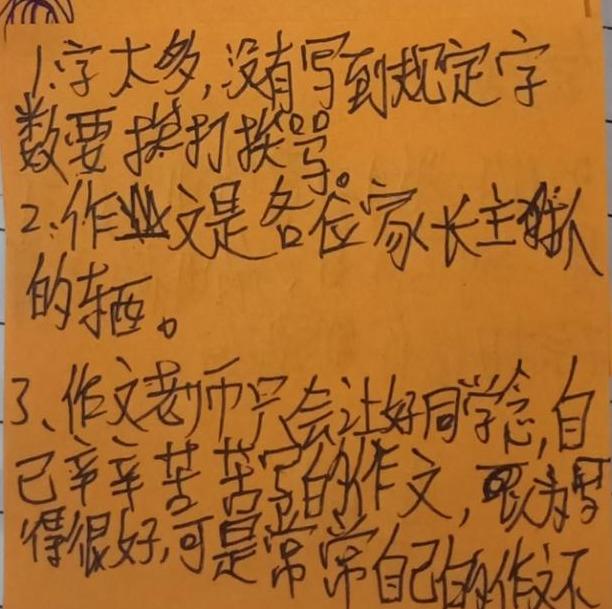 1.字太多,没有写到规定字
数要挨打挨骂。
2.作文是各位家长主
的东西。
3、作文老师只会让好同学念,自
己辛辛苦苦写的作文,写
得很好,可是常常自己的作文不